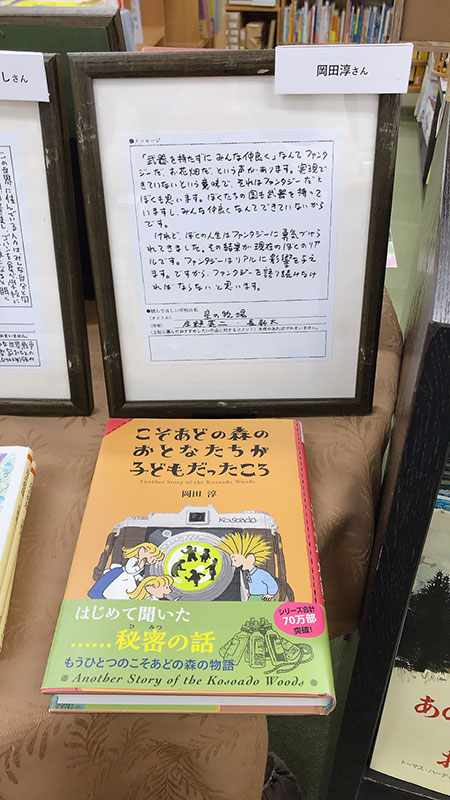 しさん
岡田淳さん
●メッセージ
「武器を持たずに みんな仲良く」なんてファンタ
ジーだ、お花畑だ、という声があります。実現で
きていないという意味で、それはファンタジーだと
ぼくも思います。ぼくたちの国も武器を持って
いますし、みんな仲良くなんてできていないから
です。
けれど、ぼくの人生はファンタジーに勇気づけら
れてきました。その結果が現在のぼくのリア
ルです。ファンタジーはリアルに影響を与え
ます。ですから、ファンタジーを語り続けなけ
ればならないと思います。
●読んでほしい平和の本
(タイトル) 星の牧場
(作者) 庄野英二 長新太
こそあどの森の
おとなたちが
子どもだったころ
Another Story of the Kosoado Woods.
岡田 淳
Kosoado
はじめて聞いた
……秘密の話
ひみつ
もうひとつのこそあどの森の物語
Another Story of the Kosoado Woods
シリーズ合計
70万部
突破!
あの
トーマス・ハーディ